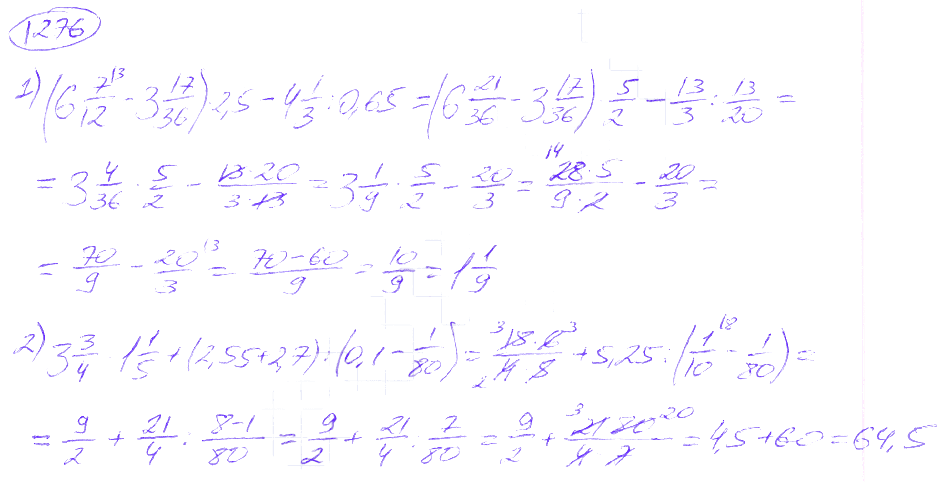 1276
1) (6 7/12 ^13 - 3 17/36) · 2,5 - 4 1/3 : 0,65 = (6 21/36 - 3 17/36) · 5/2 - 13/3 : 13/20 =
= 3 4/36 · 5/2 - 13·20/3·13 = 3 1/9 · 5/2 - 20/3 = ^14 28·5/9·2 - 20/3 =
= 70/9 - 20/3 ^13 = 70-60/9 = 10/9 = 1 1/9
2) 3 3/4 · 1 1/5 + (2,55+2,7) : (0,1 - 1/80) = ^3 18·6 ^3/_2 4·8 + 5,25 : (1/10 ^18 - 1/80) =
= 9/2 + 21/4 : 8-1/80 = 9/2 + 21/4 · 7/80 = 9/2 + ^3 21·80 ^20/4·7 = 4,5+60 = 64,5